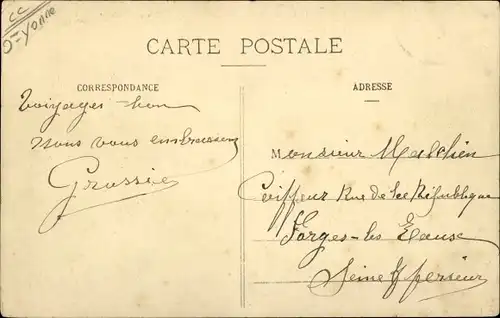 CC
D=Yonne
CARTE POSTALE
CORRESPONDANCE
Voiyages bon
Nous vous embrassons
Grossie
ADRESSE
Monsieur Malchien
Coiffeur Rue de la République
Forges-les Eause
Seine Inferieur